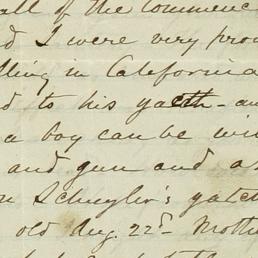 all of the commence
d I were very prou
lling in California
d to his yacth - an
a boy can be wi
and gun and a
n Schuyler's yatch
old Aug. 22d Mothe